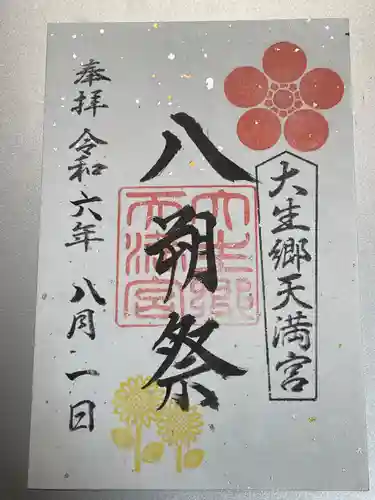 大生郷天満宮
八朔祭
大生郷
天満宮
奉拝 令和六年 八月一日